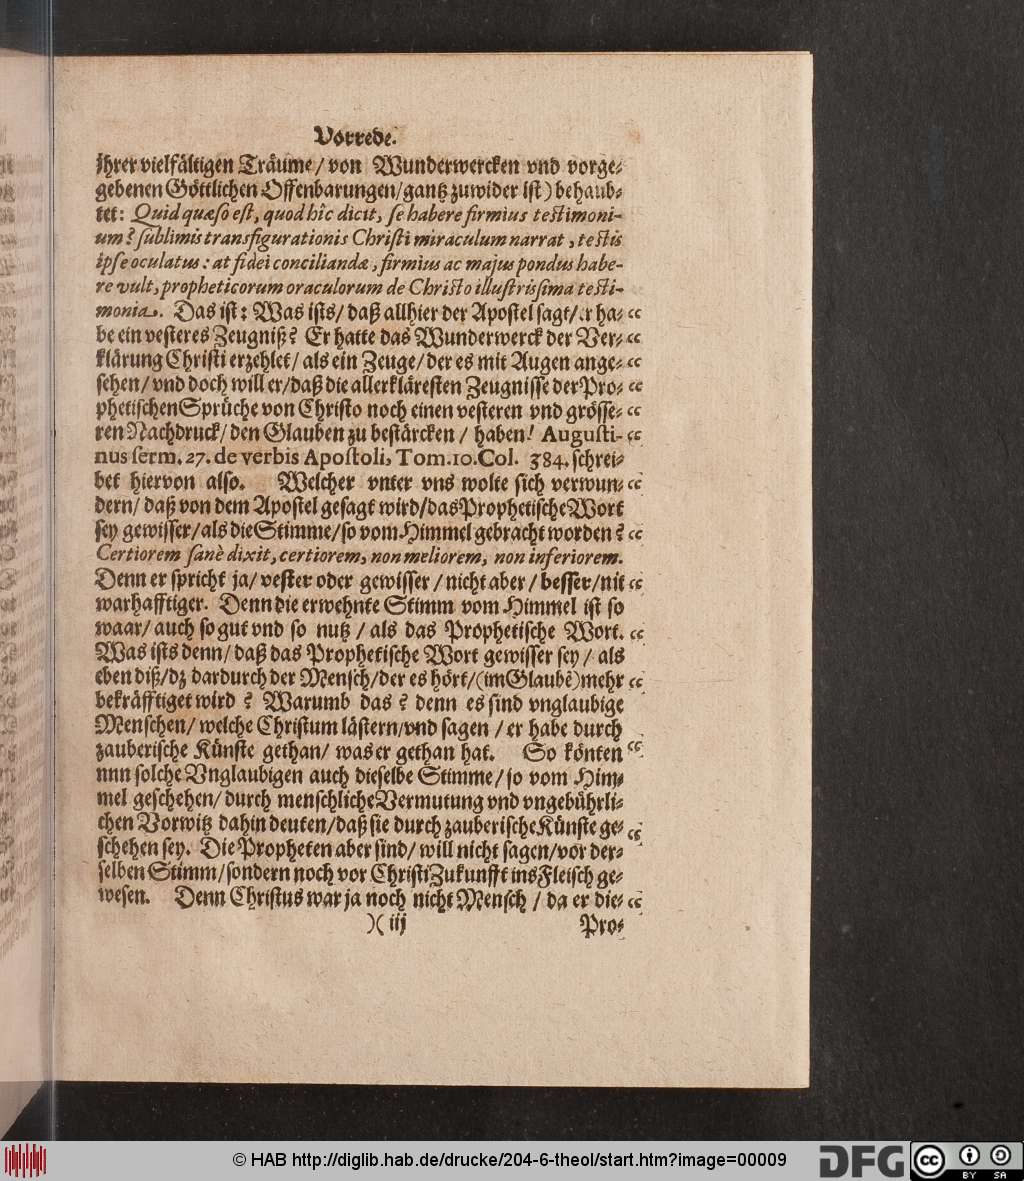 Vorrede.
ihrer vielfältigen Träume / von Wunderwercken vnd vorge-
gebenen Göttlichen Offenbarungen/gantz zuwider ist) behaub-
tet: Quid quæso est, quod hîc dicit, se habere firmius testimoni-
um? sublimis transfigurationis Christi miraculum narrat, testis
ipse oculatus: at fidei conciliandæ, firmius ac majus pondus habe-
re vult, propheticorum oraculorum de Christo illustrissima testi-
monia. Das ist: Was ists/ daß allhier der Apostel sagt/er ha- “
be ein vesteres Zeugniß? Er hatte das Wunderwerck der Ver- “
klärung Christi erzehlet/ als ein Zeuge/der es mit Augen ange- “
sehen/ vnd doch will er/daß die allerkläresten Zeugnisse der Pro- “
phetischen Sprüche von Christo noch einen vesteren vnd grösse- “
ren Nachdruck/ den Glauben zu bestärcken / haben! Augusti- “
nus serm. 27. de verbis Apostoli, Tom.10. Col. 384. schrei-
bet hiervon also. Welcher vnter vns wolte sich verwun- “
dern/ daß von dem Apostel gesagt wird/das Prophetische Wort
sey gewisser/als die Stimme/so vom Himmel gebracht worden? “
Certiorem sanè dixit, certiorem, non meliorem, non inferiorem.
Denn er spricht ja/ vester oder gewisser / nicht aber / besser/nit “
warhafftiger. Denn die erwehnte Stimm vom Himmel ist so
waar/ auch so gut vnd so nutz / als das Prophetische Wort. “
Was ists denn/ daß das Prophetische Wort gewisser sey / als
eben diß/dz dardurch der Mensch/der es hört/(im Glaubẽ) mehr “
bekräfftiget wird? Warumb das? denn es sind vnglaubige
Menschen/ welche Christum lästern/vnd sagen / er habe durch
zauberische Künste gethan/ was er gethan hat. So könten “
nnn solche Vnglaubigen auch dieselbe Stimme/ so vom Him-
mel geschehen/ durch menschliche Vermutung vnd vngebührli-
chen Vorwitz dahin deuten/daß sie durch zauberische Künste ge- “
schehen sey. Die Propheten aber sind/ will nicht sagen/vor der-
selben Stimm/sondern noch vor Christi Zukunfft ins Fleisch ge-
wesen. Denn Christus war ja noch nicht Mensch / da er die- “
)( iij Pro-
© HAB http://diglib.hab.de/drucke/204-6-theol/start.htm?image=00009
DFG
cc BY SA